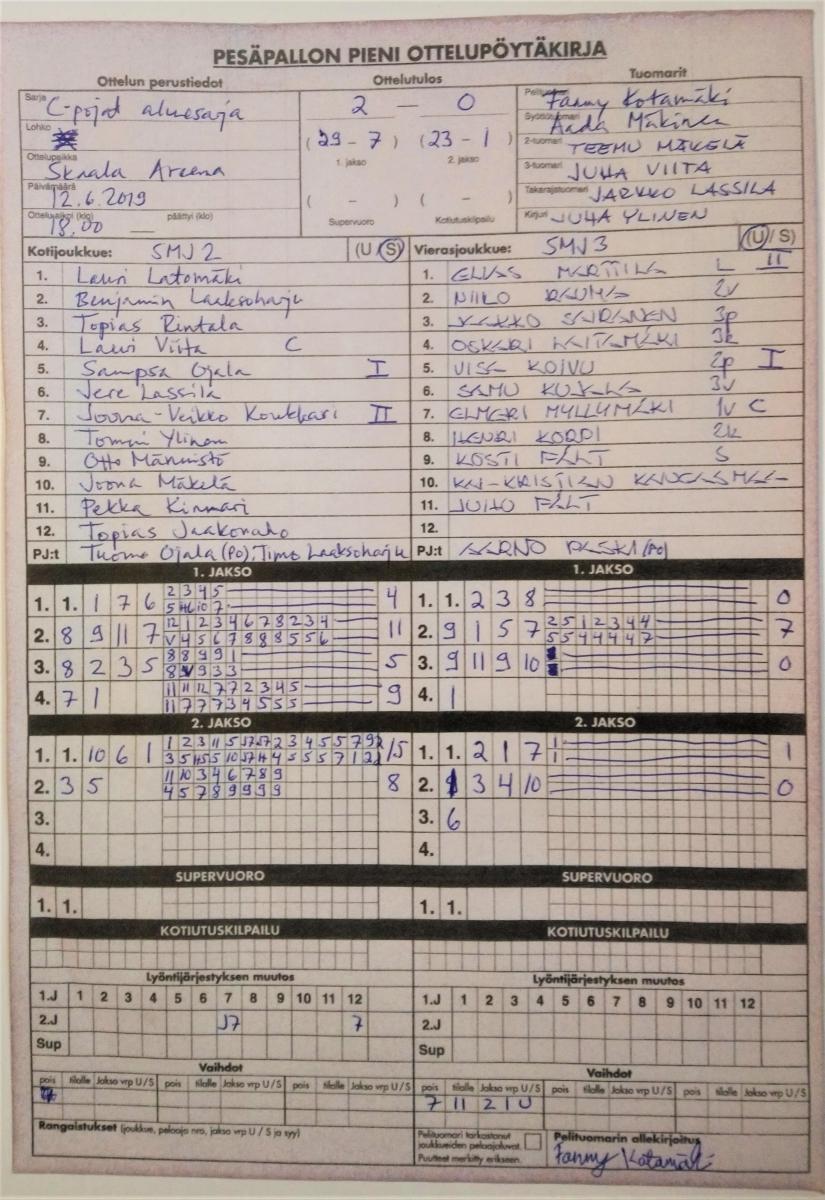 PESÄPALLON PIENI OTTELUPÖYTÄKIRJA
Ottelun perustiedot Ottelutulos Tuomarit
Sarja C-pojat aluesarja 2 – 0 Fanny Kotamäki
Lohko (29 – 7) (23 – 1) Aada Mäkinen
1. jakso 2. jakso 2-tuomari TEEMU MÄKELÄ
Ottelupaikka Skaala Areena 3-tuomari JUHA VIITA
Päivämäärä 12.6.2019 ( – ) ( – ) Takarajatuomari JARKKO LASSILA
Otteluaika (klo) 18.00 päättyi (klo) Supervuoro Kotiutuskilpailu Kirjuri JUHA YLINEN
Kotijoukkue: SMJ 2 (U / S) Vierasjoukkue: SMJ 3 (U / S)
1. Lauri Latomäki 1. ELIAS MARTTILA L II
2. Benjamin Laaksoharju 2. NIILO RAUMA 2v
3. Topias Rintala 3. SAIRANEN 3p
4. Lauri Viita C 4. OSKARI LAITAMÄKI 3k
5. Sampsa Ojala I 5. VISA KOIVU 2p I
6. Jere Lassila 6. SAMU KUJALA 3v
7. Joona-Veikko Koukkari II 7. ELMERI MYLLYMÄKI 1v C
8. Tommi Ylinen 8. HENRI KORPI 2k
9. Otto Männistö 9. KOSTI FÄLT S
10. Joona Mäkelä 10. KAI-KRISTIAN KANGASMAA
11. Pekka Kinnari 11. JUHO FÄLT
12. Topias Jaakonaho 12.
PJ:t Tuomo Ojala (PO), Timo Laaksoharju PJ:t AARNO PASKI (PO)
1. JAKSO 1. JAKSO
2 3 4 5
1. 1. 1 7 6 4 1. 1. 2 3 8 0
12 1 2 3 4 6 7 8 2 3 4 2 5 1 2 3 4 4
2. 8 9 11 7 11 2. 9 1 5 7 7
V 4 5 6 7 8 8 8 5 5 6 5 5 4 4 4 4 7
8 8 9 9 1
3. 8 2 3 5 5 3. 9 11 9 10 0
11 11 12 7 7 2 3 4 5
4. 7 1 9 4. 1
11 7 7 7 3 4 5 5 5
2. JAKSO 2. JAKSO
1. 1. 10 6 1 15 1. 1. 2 1 7 1
11 10 3 4 6 7 8 9
2. 3 5 8 2. 3 4 10 0
4 5 7 8 9 9 9 9
3. 3. 6
4. 4.
SUPERVUORO SUPERVUORO
1. 1. 1. 1.
KOTIUTUSKILPAILU KOTIUTUSKILPAILU
Lyöntijärjestyksen muutos Lyöntijärjestyksen muutos
1.J 1 2 3 4 5 6 7 8 9 10 11 12 1.J 1 2 3 4 5 6 7 8 9 10 11 12
2.J J7 7 2.J
Sup Sup
Vaihdot Vaihdot
pois tilalle Jakso vrp U / S pois tilalle Jakso vrp U / S pois tilalle Jakso vrp U / S pois tilalle Jakso vrp U / S pois tilalle Jakso vrp U / S pois tilalle Jakso vrp U / S
7 11 2 1 U
Rangaistukset (joukkue, pelaaja nro, jakso vrp U / S ja syy) Pelituomari tarkastanut joukkueiden pelaajaluvat. Pelituomarin allekirjoitus
Puutteet merkitty erikseen. Fanny Kotamäki